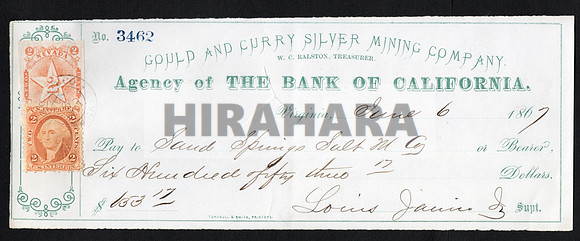 No. 3462
GOULD AND CURRY SILVER MINING COMPANY.
W. C. RALSTON, TREASURER.
Agency of THE BANK OF CALIFORNIA.
HIRAHARA
Virginia, June 6 1867
Pay to Sand Springs Salt M Co or Bearer
Six Hundred fifty three 17 Dollars.
$ 653 17 Louis Janin Jr Supt.
TURNBULL & SMITH, PRINTERS.
NEVADA
2
2 2